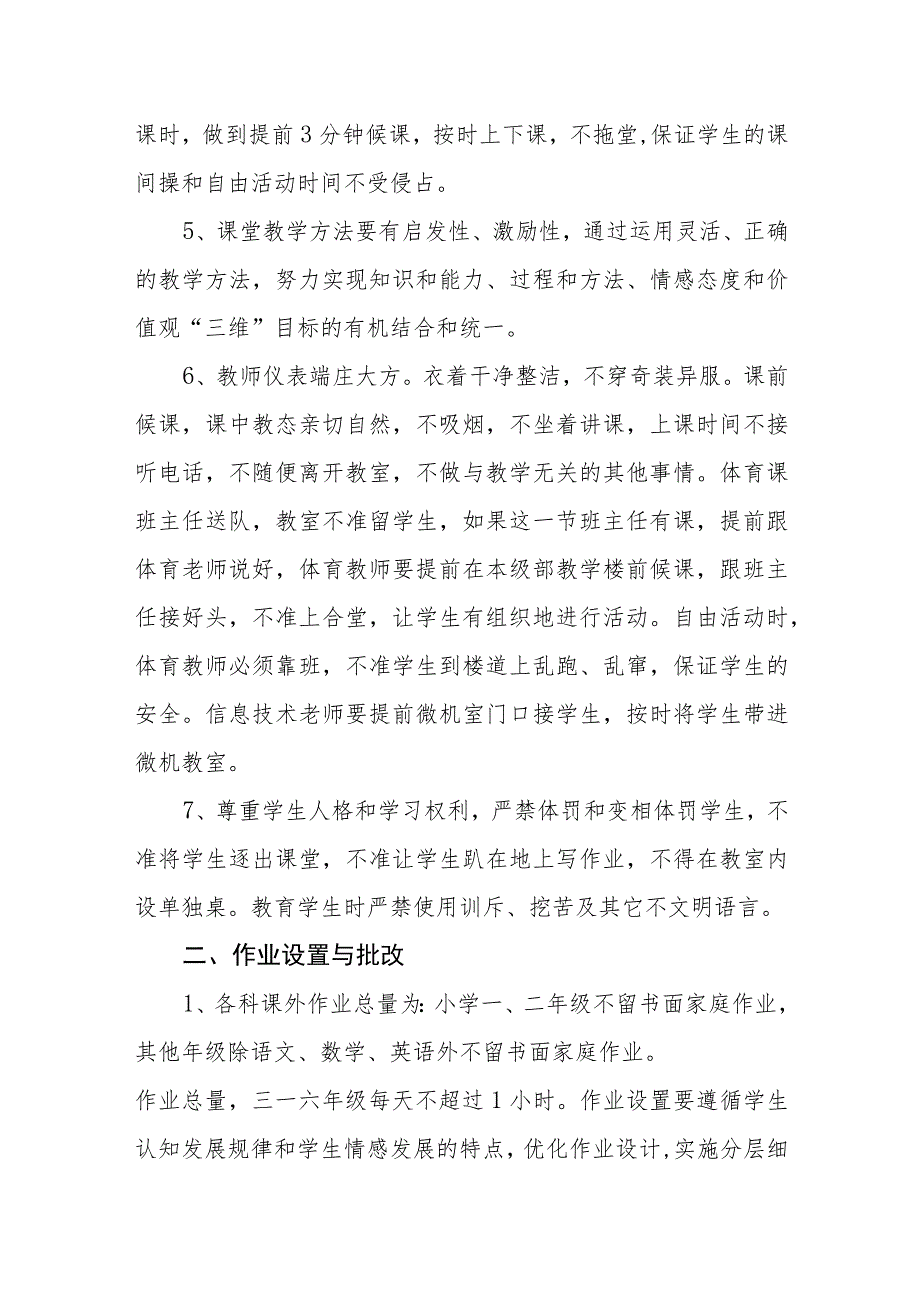 课时，做到提前 3 分钟候课，按时上下课，不拖堂,保证学生的课
间操和自由活动时间不受侵占。
5、课堂教学方法要有启发性、激励性，通过运用灵活、正确
的教学方法，努力实现知识和能力、过程和方法、情感态度和价
值观“三维”目标的有机结合和统一。
6、教师仪表端庄大方。衣着干净整洁，不穿奇装异服。课前
候课，课中教态亲切自然，不吸烟，不坐着讲课，上课时间不接
听电话，不随便离开教室，不做与教学无关的其他事情。体育课
班主任送队，教室不准留学生，如果这一节班主任有课，提前跟
体育老师说好，体育教师要提前在本级部教学楼前候课，跟班主
任接好头，不准上合堂，让学生有组织地进行活动。自由活动时，
体育教师必须靠班，不准学生到楼道上乱跑、乱窜，保证学生的
安全。信息技术老师要提前微机室门口接学生，按时将学生带进
微机教室。
7、尊重学生人格和学习权利，严禁体罚和变相体罚学生，不
准将学生逐出课堂，不准让学生趴在地上写作业，不得在教室内
设单独桌。教育学生时严禁使用训斥、挖苦及其它不文明语言。
二、作业设置与批改
1、各科课外作业总量为：小学一、二年级不留书面家庭作业，
其他年级除语文、数学、英语外不留书面家庭作业。
作业总量，三一六年级每天不超过 1 小时。作业设置要遵循学生
认知发展规律和学生情感发展的特点，优化作业设计,实施分层细